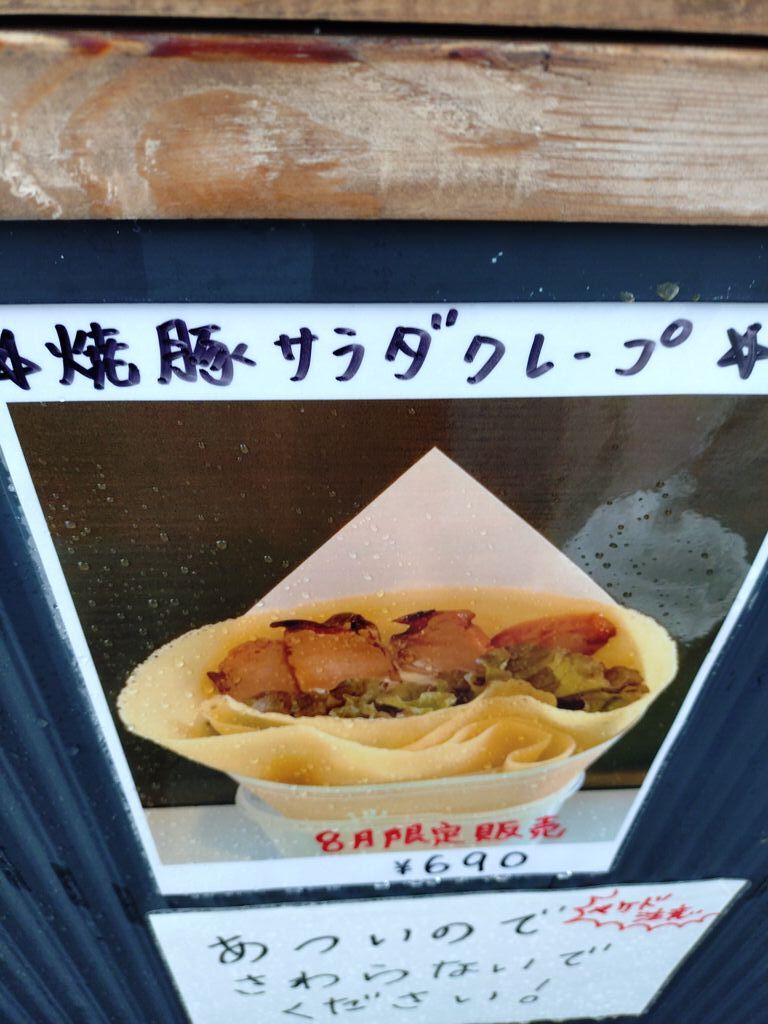 ☆焼豚サラダクレープ☆
8月限定販売
¥690
ヤケド
注意
あついので
さわらないで
ください!